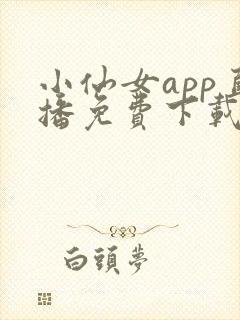 小仙女app直
播免費下載
白頭夢